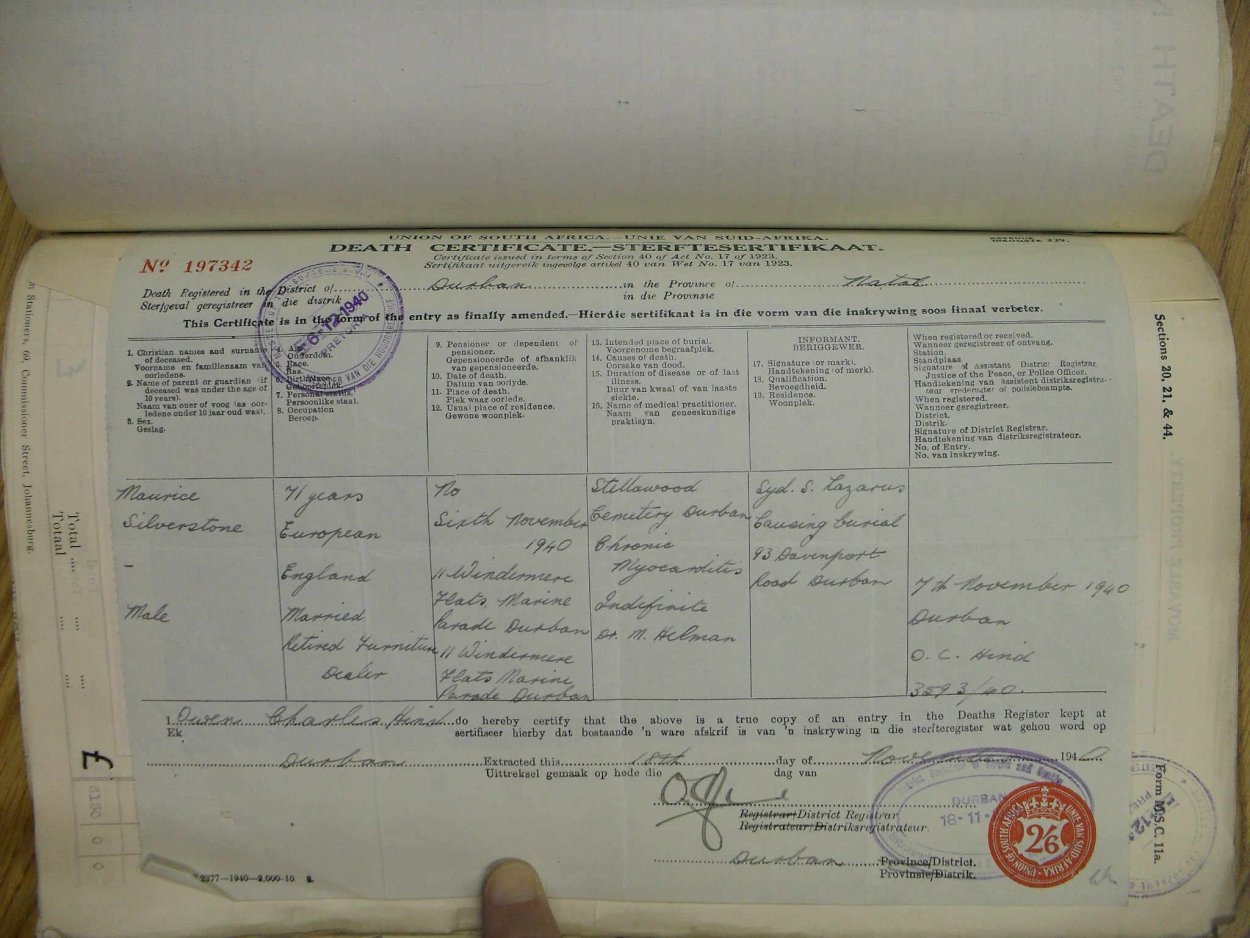 UNION OF SOUTH AFRICA.—UNIE VAN SUID-AFRIKA.
DEATH CERTIFICATE.—STERFTESERTIFIKAAT.
Certificate issued in terms of Section 40 of Act No. 17 of 1923.
Sertifikaat uitgereik ingevolge artikel 40 van Wet No. 17 van 1923.
REVENUE
No 197342
Death Registered in the District of Durban in the Province of Natal
Sterfgeval geregistreer in die distrik in die Provinsie
This Certificate is in the form of the entry as finally amended.—Hierdie sertifikaat is in die vorm van die inskrywing soos finaal verbeter.
-6-12-1940
PRETORIA
1. Christian names and surname of deceased.
Voorname en familienaam van oorledene.
2. Name of parent or guardian (if deceased was under the age of 10 years).
Naam van ouer of voog (as oorledene onder 10 jaar oud was).
3. Sex.
Geslag.
4. Age.
Ouderdom.
5. Race.
Ras.
6. Birthplace.
Geboorteplek.
7. Personal status.
Persoonlike staat.
8. Occupation
Beroep.
9. Pensioner or dependent of pensioner.
Gepensioeneerde of afhanklik van gepensioeneerde.
10. Date of death.
Datum van oorlyde.
11. Place of death.
Plek waar oorlede.
12. Usual place of residence.
Gewone woonplek.
13. Intended place of burial.
Voorgenome begraafplek.
14. Causes of death.
Oorsake van dood.
15. Duration of disease or of last illness.
Duur van kwaal of van laaste siekte.
16. Name of medical practitioner.
Naam van geneeskundige praktisyn.
INFORMANT.
BERIGGEWER.
17. Signature (or mark).
Handtekening (of merk).
18. Qualification.
Bevoegdheid.
19. Residence.
Woonplek.
When registered or received.
Wanneer geregistreer of ontvang.
Station.
Standplaas
Signature of Assistant District Registrar
Justice of the Peace, or Police Officer.
Handtekening van Assistent distrikregistrateur
When registered.
Wanneer geregistreer.
District.
Distrik.
Signature of District Registrar.
Handtekening van distriksregistrateur.
No. of Entry.
No. van inskrywing.
Maurice
Silverstone
–
Male
71 years
European
England
Married
Retired Furniture
Dealer
No
Sixth November
1940
11 Windermere
Flats Marine
Parade Durban
11 Windermere
Flats Marine
Parade Durban
Stellawood
Cemetery Durban
Chronic
Myocarditis
Indefinite
Dr. M. Helman
Sgd. S. Lazarus
Causing burial
93 Davenport
Road Durban
7th November 1940
Durban
O. C. Hind
3593/40.
I, Owen Charles Hind do hereby certify that the above is a true copy of an entry in the Deaths Register kept at
Ek sertifiseer hierby dat bostaande 'n ware afskrif is van 'n inskrywing in die sterfteregister wat gehou word op
Durban Extracted this 18th day of November 1940
Uittreksel gemaak op hede die dag van
Registrar/District Registrar
Registrateur/Distriksregistrateur.
Durban Province/District.
Provinsie/Distrik.
DURBAN
18-11-
UNION OF SOUTH AFRICA
UNIE VAN SUID-AFRIKA
2/6
2377—1940—2,000-10 S.
Stationers, 60 Commissioner Street, Johannesburg.
Total
Totaal
7
6150 0 0
Sections 20, 21, & 44.
Form M.S.C. 11a.